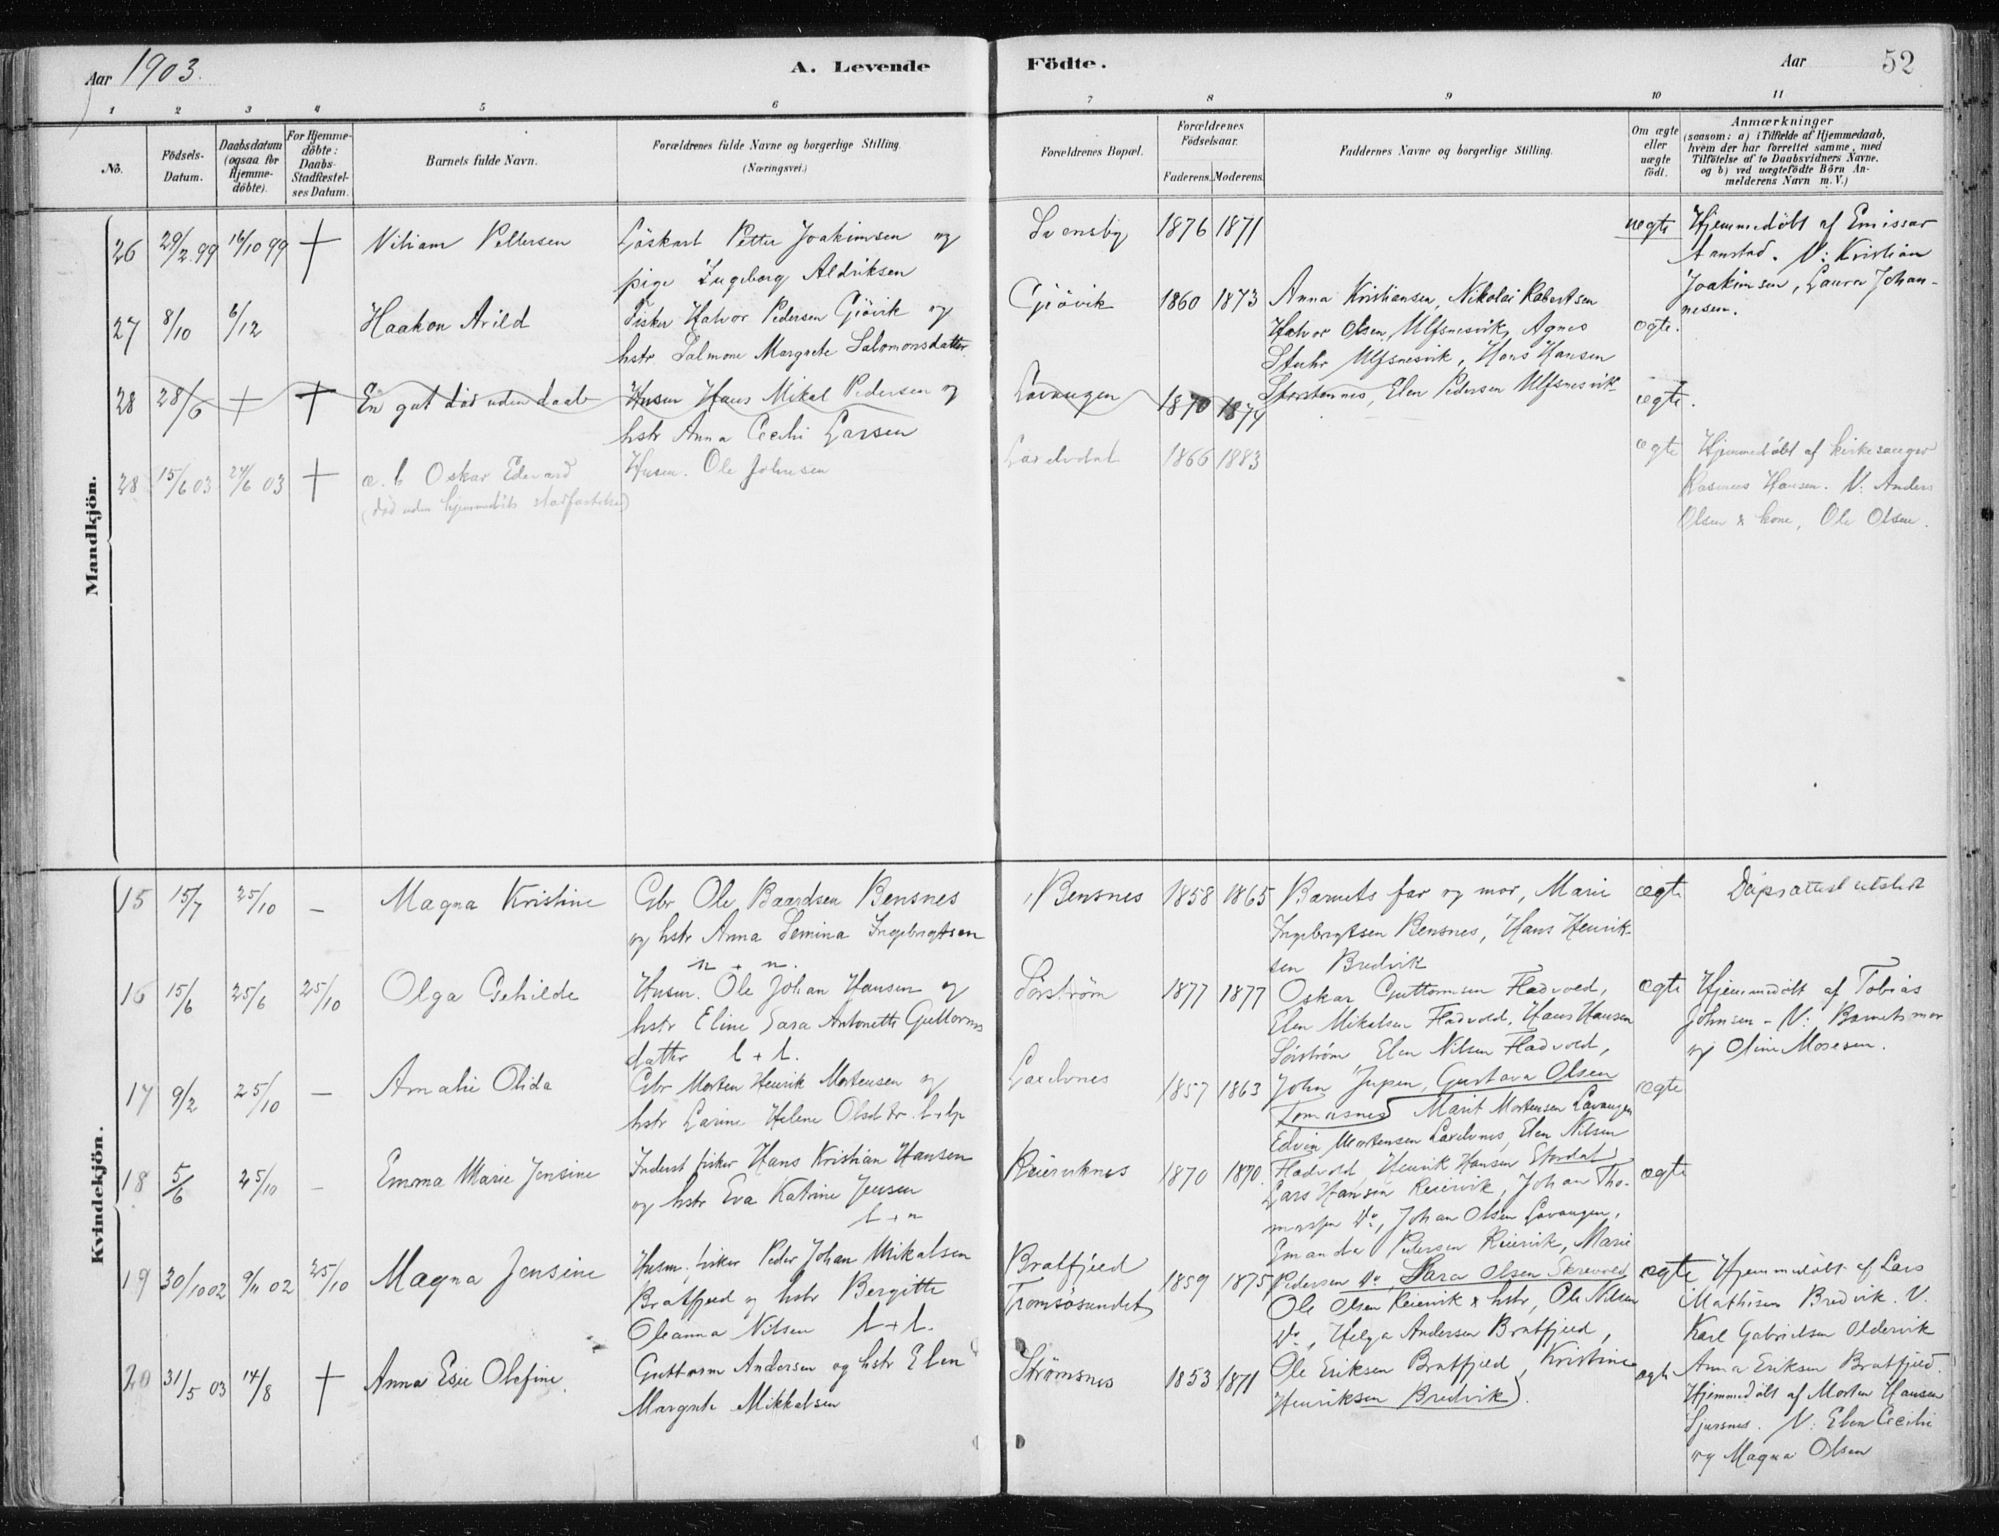 Aar 1903.
A. Levende
Födte.
Aar
52
1 2 3 4 5 6 7 8 9 10 11
No.
Födsels-
Datum.
Daabsdatum
(ogsaa for
Hjemme-
döbte).
For Hjemme-
döbte:
Daabs-
Stadfæstel-
ses Datum.
Barnets fulde Navn.
Forældrenes fulde Navne og borgerlige Stilling
(Næringsvei.)
Forældrenes Bopæl.
Forældrenes
Födselsaar.
Faderens. Moderens.
Faddernes Navne og borgerlige Stilling.
Om ægte
eller
uægte
födt.
Anmærkninger
(saasom: a) i Tilfælde af Hjemmedaab,
hvem der har forrettet samme, med
Tilföielse af to Daabsvidners Navne,
og b) ved uægtefödte Börn An-
melderens Navn m. V.)
Mandkjön.
26 29/2 99 16/10 99 † Viliam Pettersen
Løskarl Petter Joakimsen og
pige Ingeborg Aldriksen
Svensby 1876 1871
uegte
Hjemmedøbt af Emissær
Aanstad. V: Kristian
Joakimsen, Laura Johan-
nesen.
27 8/10 6/12 Haakon Arild
Fisker Halvor Pedersen Gjövik og
hstr Salmone Margrete Salomonsdatter
Gjövik 1860 1873
Anna Kristiansen, Nikolai Robertsen
Halvor Olsen, Ulfsnesvik, Agnes
Stuhr Ulfsnesvik, Hans Hansen
Storstennes, Elen Pedersen Ulfsnesvik
egte.
28 28/6 + † En gut død uden daab
Husm Hans Mikal Pedersen og
hstr Anna Cecilie Larsen
Lavangen 1870 1874
ægte.
28 15/6 03 24/6 03 † Oskar Edevard
(død uden hjemmedøbts stadfæstelse)
Husm. Ole Johnsen
Laxelvdal 1866 1883
egte
Hjemmedøbt af kirkesanger
Rasmus Hansen. V. Anders
Olsen & kone, Ole Olsen.
Kvindekjön.
15 15/7 25/10 – Magna Kristine
Gbr Ole Baardsen Bensnes
og hstr Anna Semina Ingebrigtsen
n + n.
Bensnes 1858 1865
Barnets far og mor, Marie
Ingebrigtsen Bensnes, Hans Henrik-
sen Bredvik
ægte
Dåpsattest utstedt
16 15/6 25/6 25/10 Olga Gehilde
Husm. Ole Johan Hansen og
hstr Eline Sara Antonette Guttorms
datter l + l.
Sørstrøm 1877 1877
Oskar Guttormsen Fladvold,
Elen Mikalsen Fladvold, Hans Hansen
Sörström Elen Nilsen Fladvold,
egte
Hjemmedøbt af Tobias
Johnsen – V: Barnets mor
og Oline Mosesen.
17 9/2 25/10 – Amalie Olida
Gbr Morten Henrik Mortensen og
hstr Larine Helene Olsdtr.
Laxelvnes 1857 1863
John Jupen, Gustava Olsen
Tomasnes Marit Mortensen Lavangen
Edvin Mortensen Laxelvnes, Elen Nilsen
ægte
18 5/6 25/10 – Emma Marie Jensine
Inderst fisker Hans Kristian Hansen
og hstr Eva Katrine Jensen
l + n
Reiervknes 1870 1870.
Fladvold, Henrik Hansen
Lars Hansen Reiervik, Johan Tho-
massen Do, Johan Olsen Lavangen,
Emanda Pedersen Reiervik, Marie
ægte
19 30/10 02 9/11 02 25/10 Magna Jensine
Husm, fisker Peder Johan Mikalsen
Bratfjeld og hstr Bergitte
Oleanna Nilsen l + l.
Bratfjeld
Tromsøsundet 1859 1875
Pedersen Do Sara Olsen Skrevold
Ole Olsen Reiervik & hstr, Ole Nilsen
Do, Helga Andersen Bratfjeld,
ægte
Hjemmedøbt af Lars
Mathisen Bredvik. V.
Karl Gabrielsen Oldervik
Anna Eriksen Bratfjeld.
20 31/5 03 14/8 † Anna Esie Olefine.
Guttorm Andersen og hstr Elen
Margrete Mikkelsen
Strømsnes 1853 1871
Ole Eriksen Bratfjeld, Kristine
Henriksen Bredvik.
egte
Hjemmedøbt af Morten Hansen
Sjursnes. V: Elen Cecilie
og Magna Olsen